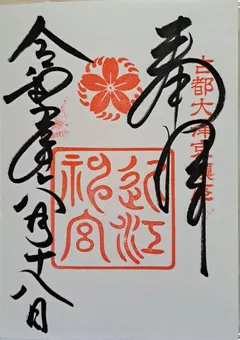 古都大津京鎮座
奉拝
近江神宮
令和 年八月十八日